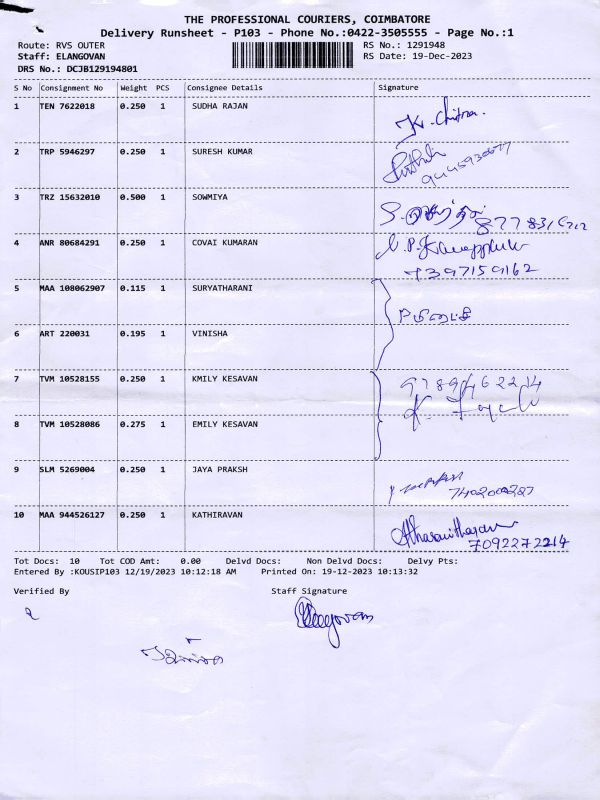 THE PROFESSIONAL COURIERS, COIMBATORE
Delivery Runsheet - P103 - Phone No.:0422-3505555 - Page No.:1
Route: RVS OUTER RS No.: 1291948
Staff: ELANGOVAN RS Date: 19-Dec-2023
DRS No.: DCJB129194801
S No Consignment No Weight PCS Consignee Details Signature
1 TEN 7622018 0.250 1 SUDHA RAJAN K. Chitra.
2 TRP 5946297 0.250 1 SURESH KUMAR
3 TRZ 15632010 0.500 1 SOWMIYA
4 ANR 80684291 0.250 1 COVAI KUMARAN
5 MAA 108062907 0.115 1 SURYATHARANI
6 ART 220031 0.195 1 VINISHA
7 TVM 10528155 0.250 1 KMILY KESAVAN
8 TVM 10528086 0.275 1 EMILY KESAVAN
9 SLM 5269004 0.250 1 JAYA PRAKSH
10 MAA 944526127 0.250 1 KATHIRAVAN
7092272214
Tot Docs: 10 Tot COD Amt: 0.00 Delvd Docs: Non Delvd Docs: Delvy Pts:
Entered By :KOUSIP103 12/19/2023 10:12:18 AM Printed On: 19-12-2023 10:13:32
Verified By Staff Signature